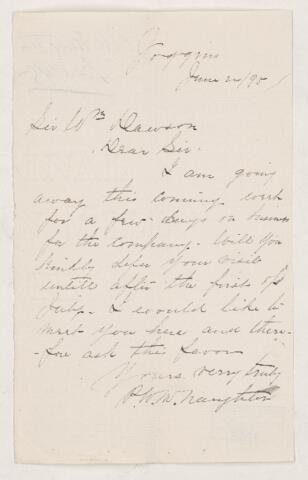 Joggins
June 21/95
Sir Wm Dawson
Dear Sir.
I am going
away this coming week
for a few days on business
for the company. Will you
kindly defer your visit
untill after the first of
July. I would like to
meet you here and there-
-fore ask this favor
Yours very truly
P. W. McNaughton